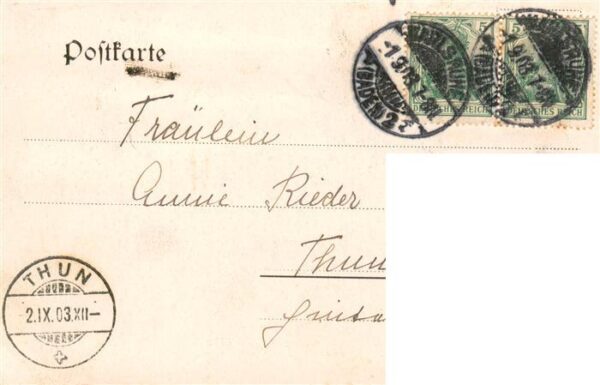 Postkarte
5
5
KARLSRUHE
1.9.03.7-8N
(BADEN) 2
DEUTSCHES REICH
DEUTSCHES REICH
Fräulein
Annie Rieder
Thun
THUN
2.IX.03.XII-